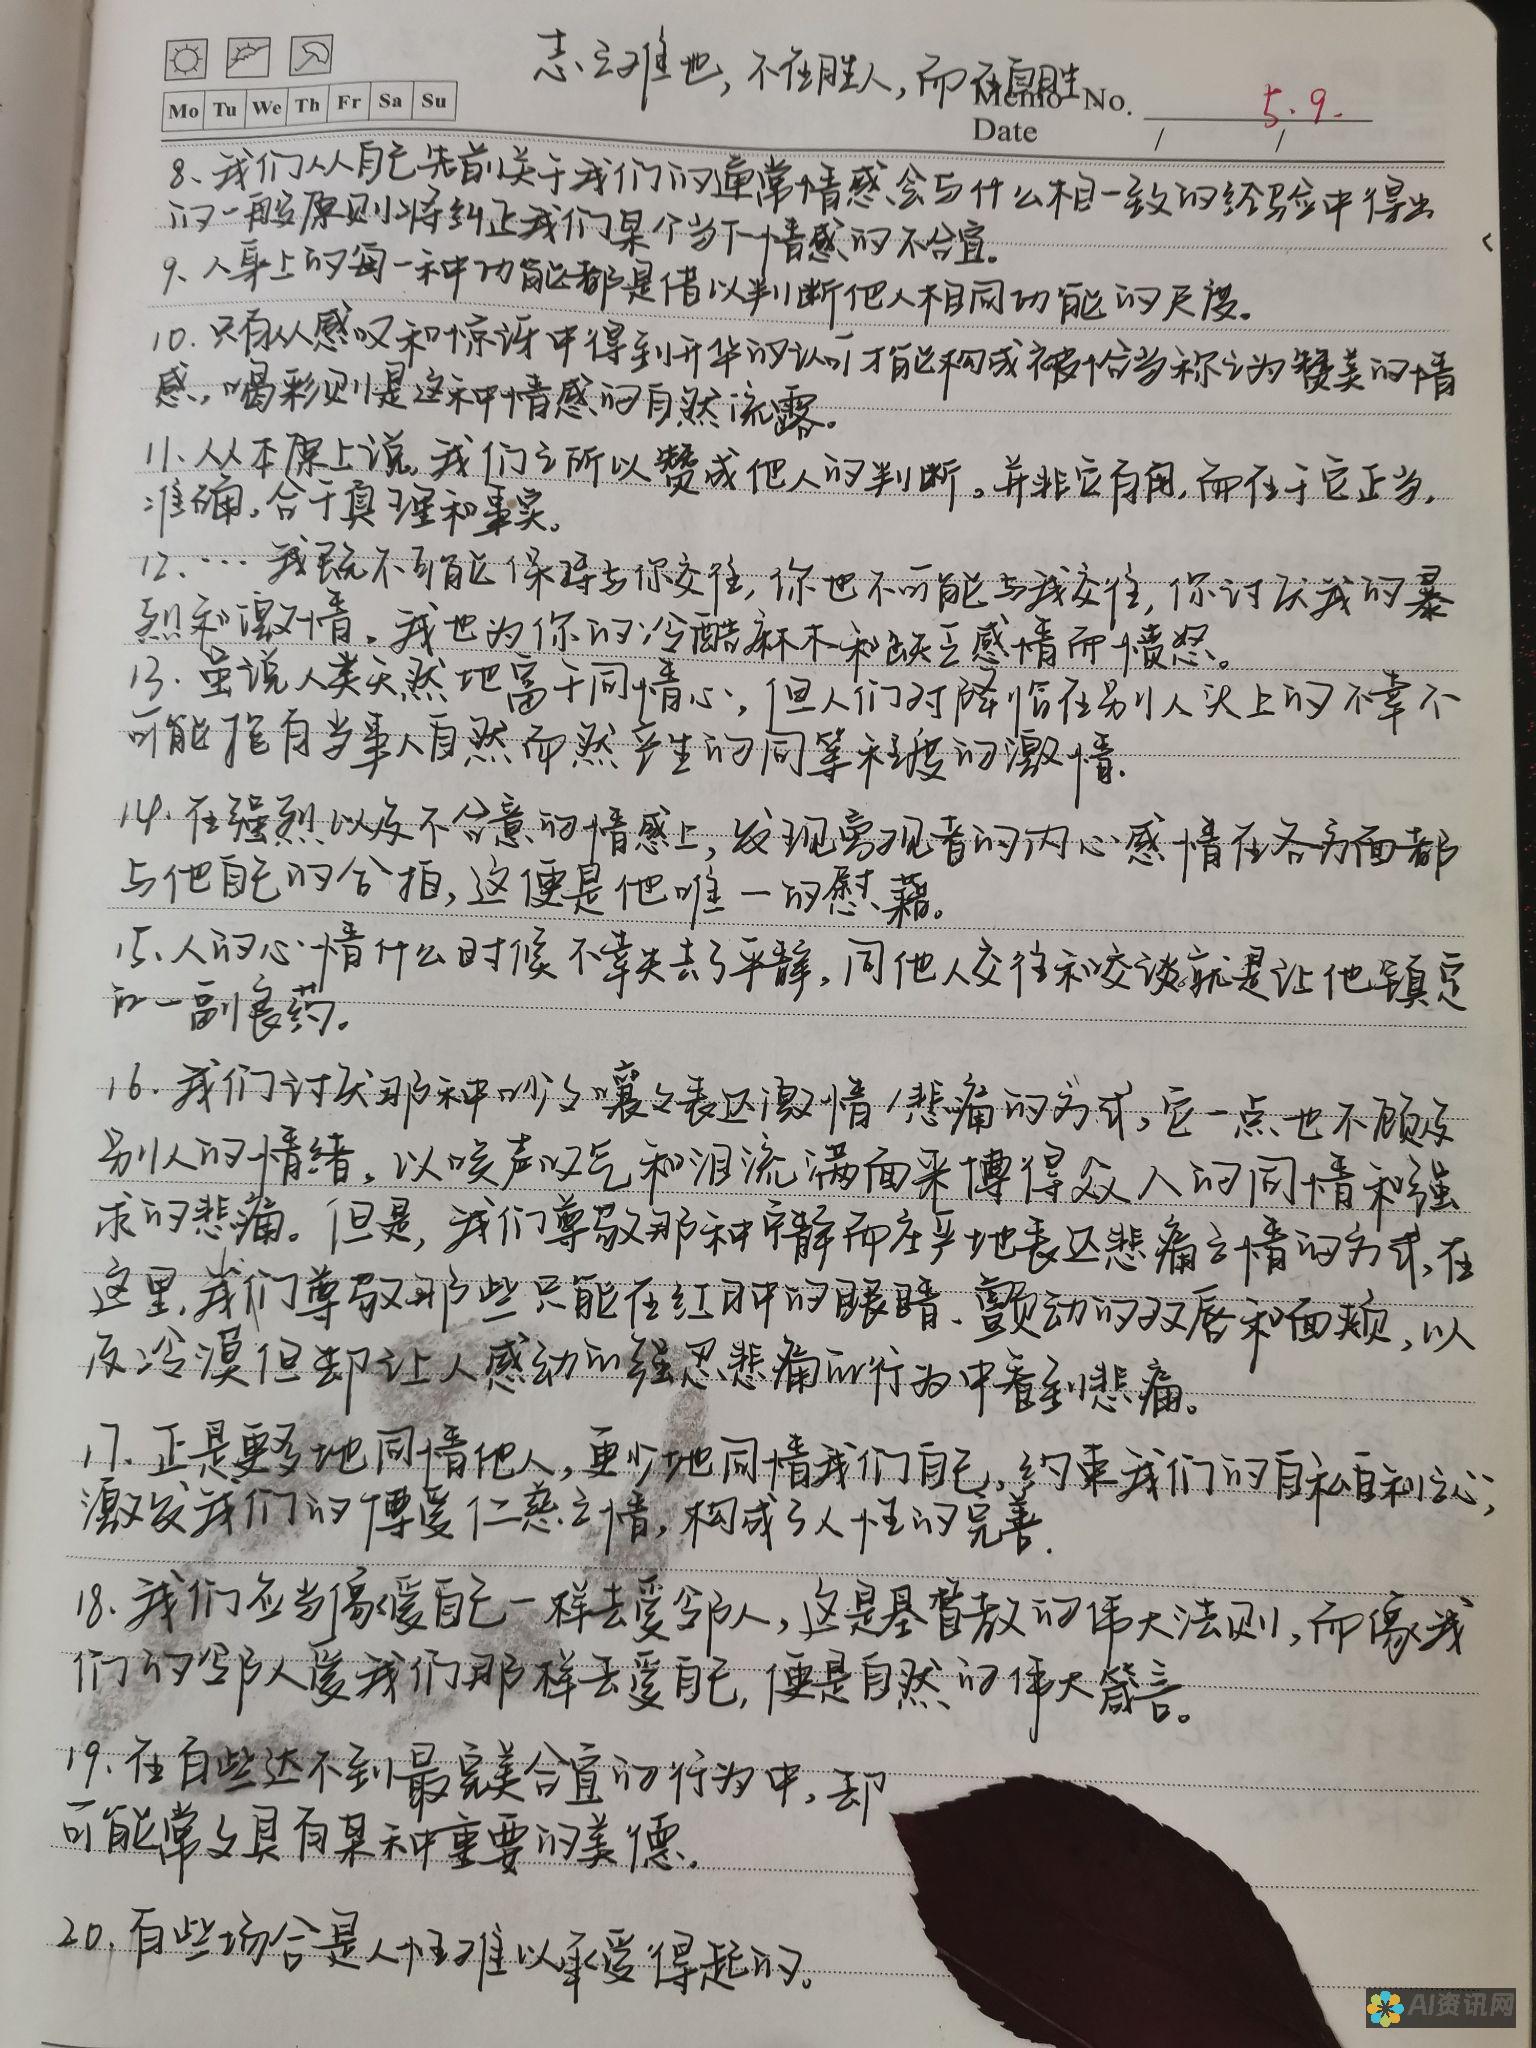 志之难也，不在胜人，而在自胜。
Mo Tu We Th Fr Sa Su
Memo No.
5.9.
Date / /
8、我们从自己先前关于我们的通常情感会与什么相一致的经验中得出
的一般原则将纠正我们某个当下情感的不合宜。
9、人身上的每一种功能都是借以判断他人相同功能的尺度。
10、只有从感叹和惊讶中得到升华的认可才能构成被恰当称之为赞美的情
感，喝彩则是这种情感的自然流露。
11、从本原上说，我们之所以赞成他人的判断，并非它有用，而在于它正当，
准确，合于真理和事实。
12、…我既不可能保持与你交往，你也不可能与我交往，你讨厌我的暴
烈和激情，我也为你的冷酷麻木和缺乏感情而愤怒。
13、虽说人类天然地富于同情心，但人们对降临在别人头上的不幸不
可能抱有当事人自然而然产生的同等程度的激情.
14、在强烈以及不合意的情感上，发现旁观者的内心感情在各方面都
与他自己的合拍，这便是他唯一的慰藉。
15、人的心情什么时候不幸失去了平静，同他人交往和交谈就是让他镇定
的一副良药。
16、我们讨厌那种吵吵嚷嚷表达激情/悲痛的方式，它一点也不顾及
别人的情绪，以唉声叹气和泪流满面来博得众人的同情和强
求的悲痛。但是，我们尊敬那种宁静而庄严地表达悲痛之情的方式，在
这里，我们尊敬那些只能在红肿的眼睛、颤动的双唇和面颊，以
及冷漠但却让人感动的强忍悲痛的行为中看到悲痛。
17、正是更多地同情他人，更少地同情我们自己，约束我们的自私自利之心，
激发我们的博爱仁慈之情，构成了人性的完善.
18、我们应当像爱自己一样去爱邻人，这是基督教的伟大法则，而像我
们的邻人爱我们那样去爱自己，便是自然的伟大箴言。
19、在有些达不到最完美合宜的行为中，却
可能常常具有某种重要的美德.
20、有些场合是人性难以承受得起的。
AI资讯网